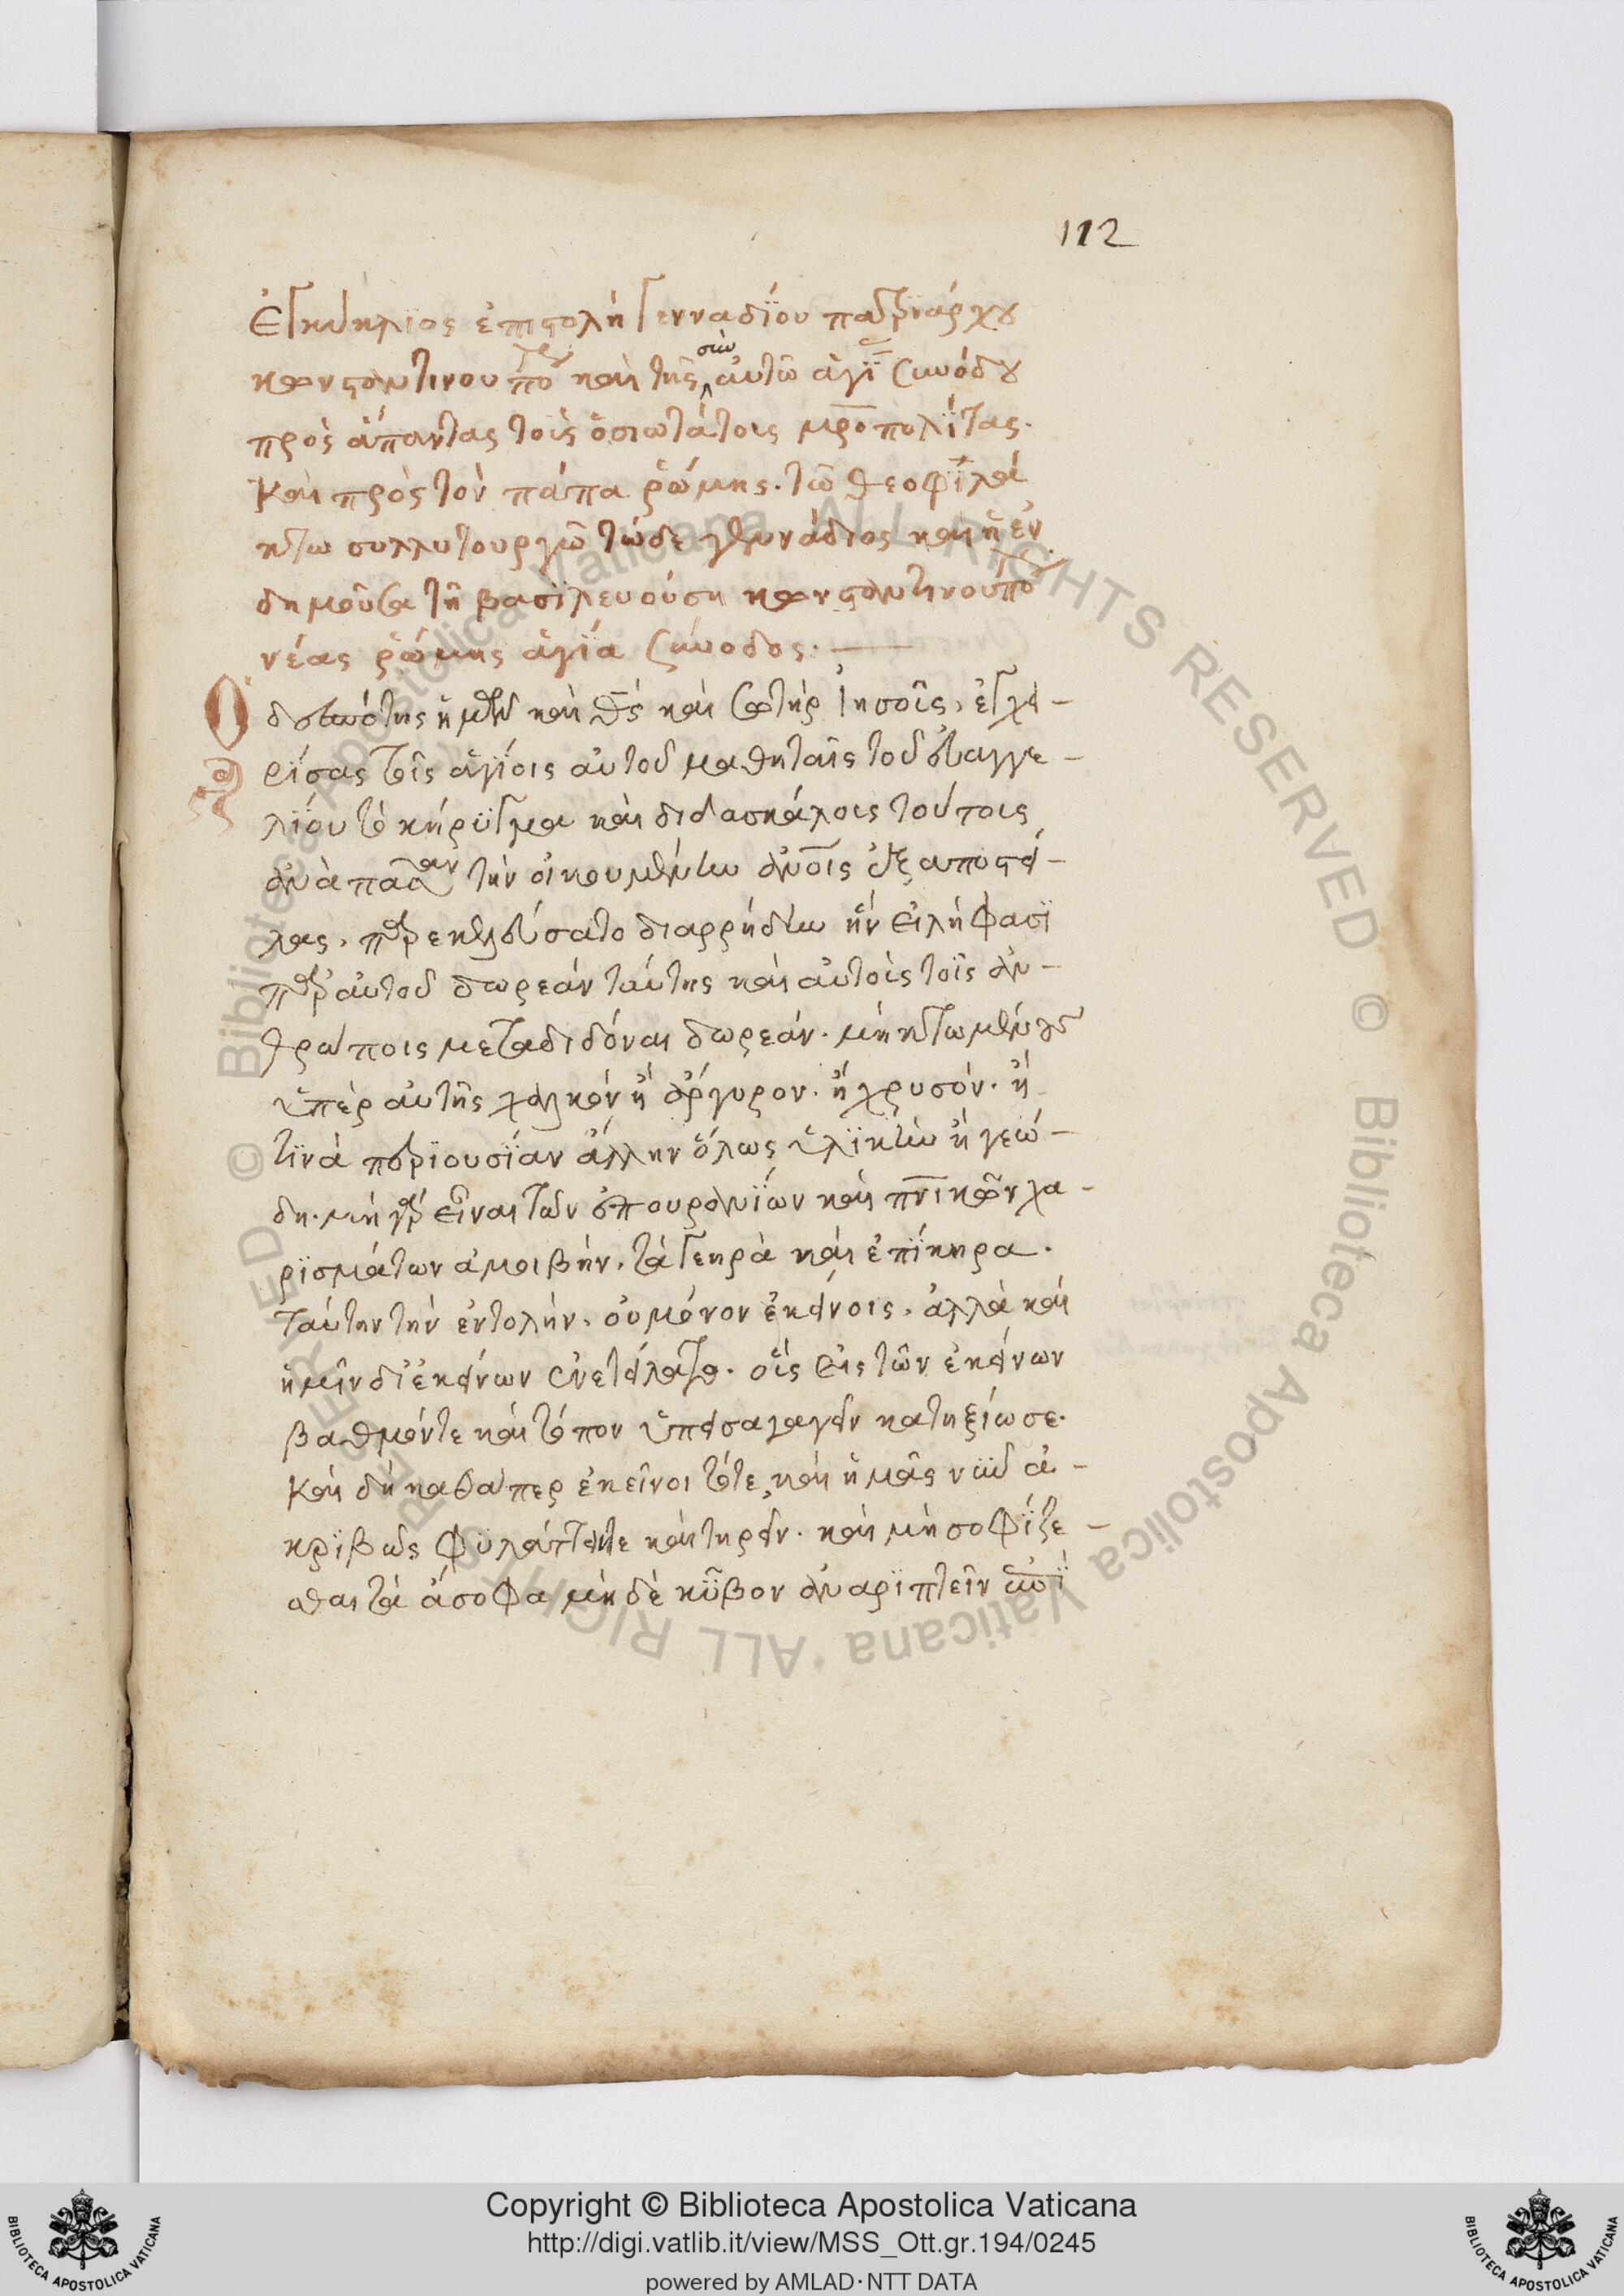 112
ἐγκύκλιος ἐπιστολὴ γενναδΐου πατρϊάρχου
κωνσταντινουπό καὶ τῆς σὺν αὐτῶ ἁγΐ συνόδου
πρὸς ἅπαντας τοὺς ὁσιωτάτους μροπολΐτας.
καὶ πρὸς τὸν πάπα ῥώμης. τῶ θεοφϊλε
στάτω συλλειτουργῶ τῶδε γεννάδιος καὶ ἡ ἐν
δημοῦσα τῆ βασϊλευούση κωνσταντινουπό
νέας ῥώμης ἁγΐα σύνοδος.
Ὁ δεσπότης ἡμῶν καὶ θς καὶ σωτὴρ ἰησοῦς, ἐγχει-
ρΐσας τοῖς ἁγΐοις αὐτοῦ μαθηταῖς τοῦ εὐαγγε-
λΐου τὸ κήρϋγμα καὶ διδασκάλους τούτους
ἀνὰ πᾶσαν τὴν οἰκουμένην ἀνοις ἐξαποστεί-
λας, παρεκελεύσατο διαρρήδην ἣν εἰλήφασϊ
παρ αὐτοῦ δωρεὰν ταύτης καὶ αὐτοὺς τοῖς ἀν-
θρώποις μεταδιδόναι δωρεάν. μὴ κτωμένους
ὑπὲρ αὐτῆς χαλκὸν ἢ ἄργυρον. ἢ χρυσόν. ἢ
τϊνὰ περϊουσΐαν ἄλλην ὅλως ὑλϊκὴν ἢ γεώ-
δη. μὴ γὰρ εἶναι τῶν ἐπουρανΐων καὶ πνικῶν χα-
ρϊσμάτων ἀμοιβήν, τὰ γεηρὰ καὶ ἐπΐκηρα.
ταύτην τὴν ἐντολὴν, οὐ μόνον ἐκείνοις, ἀλλὰ καὶ
ἡμῖν δι ἐκείνων ἐνετείλατο. οὓς εἰς τῶν ἐκείνων
βαθμόν τε καὶ τόπον ὑπεισαγαγεῖν κατηξΐωσε.
καὶ δὴ καθάπερ ἐκεῖνοι τότε, καὶ ἡμᾶς νῦν ἀ-
κρϊβῶς φϋλάττειν τε καὶ τηρεῖν. καὶ μὴ σοφΐζε-
σθαι τὰ ἄσοφα μὴ δὲ κῦβον ἀναρϊπτεῖν